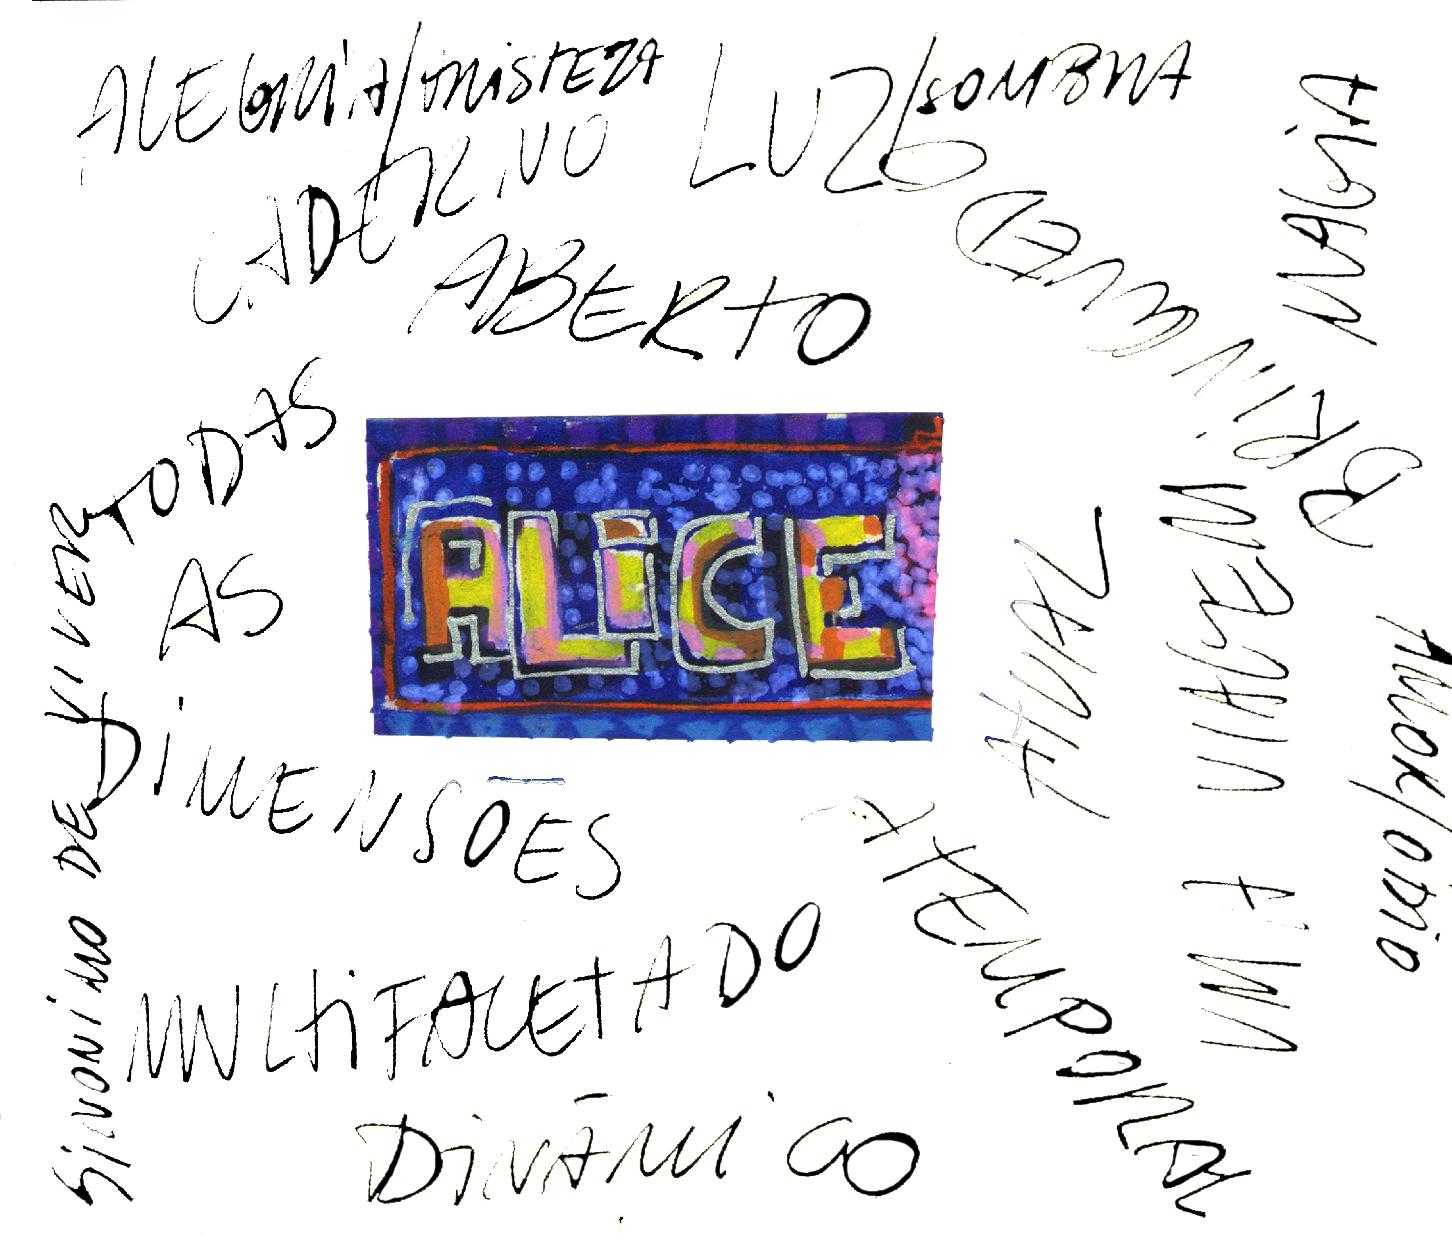 ALEGRIA/TRISTEZA
LUZ/SOMBRA
MAGIA
CADERNO
ABERTO
BRINQUEDO
TODAS
AS
DIMENSÕES
ALiCE
ATUAL
UMA VIAGEM
AMOR/ODIO
SINONIMO DE VIVER
ATEMPORAL
MULTIFACETADO
DINÂMICO